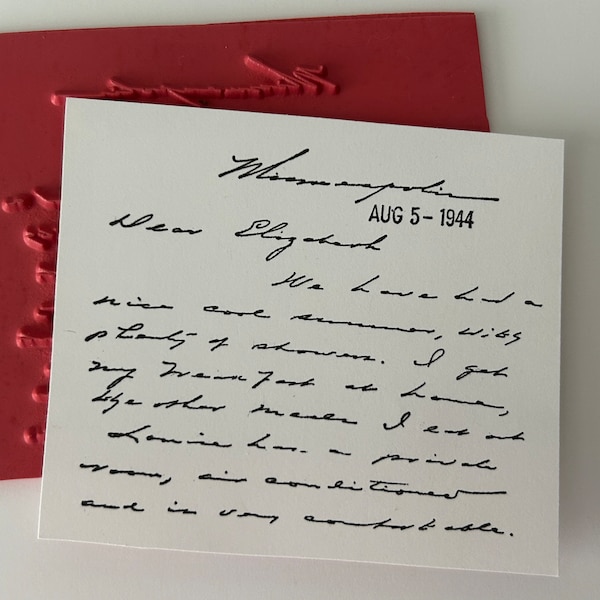 Minneapolis
AUG 5 - 1944
Dear Elizabeth
We have had a
nice cool summer, with
plenty of showers. I get
my breakfast at home,
the other meals I eat at
Louise has a private
room, air conditioned
and is very comfortable.